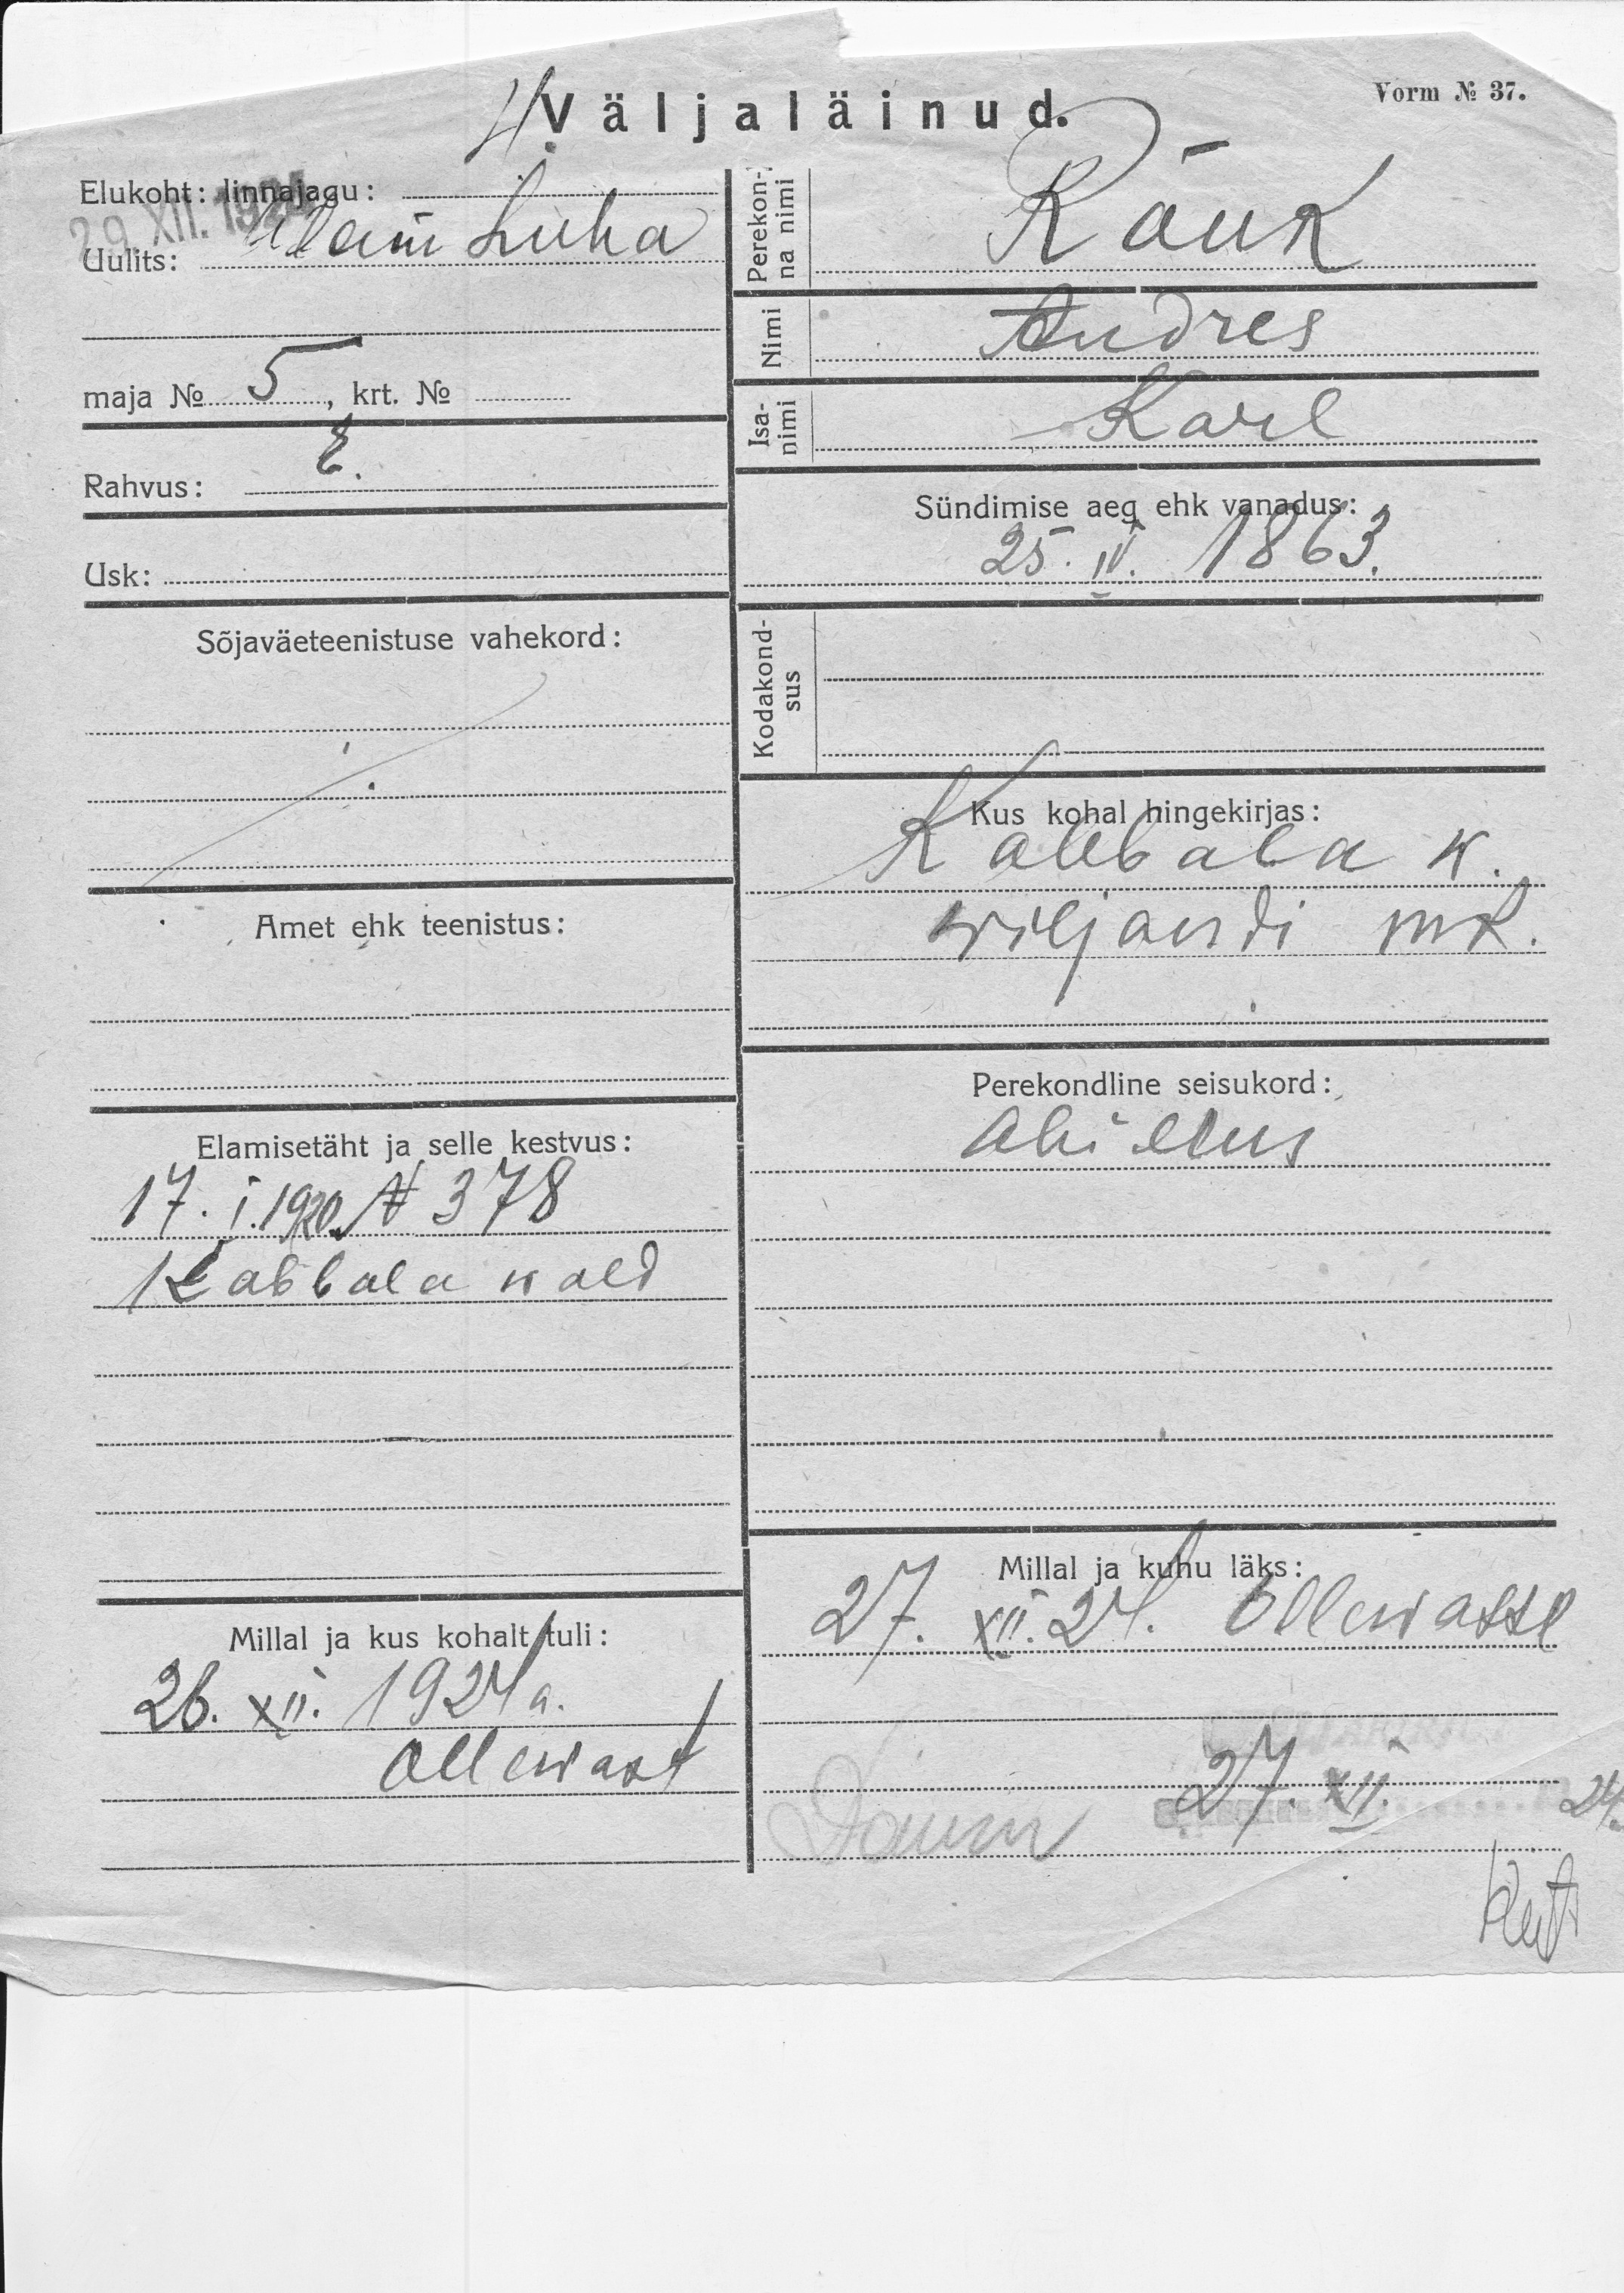 4.
Väljaläinud.
Vorm № 37.
Elukoht: linnajagu:
29. XII. 1924
Uulits: Luha
maja № 5, krt. №
Rahvus: E.
Usk:
Sõjaväeteenistuse vahekord:
Amet ehk teenistus:
Elamisetäht ja selle kestvus:
17. I. 1920. № 378
Kabbala wald
Millal ja kus kohalt tuli:
26. XII. 1924 a.
Ollewast
Perekon-
na nimi
Räuk
Nimi
Andres
Isa-
nimi
Karl
Sündimise aeg ehk vanadus:
25. IV. 1863.
Kodakond-
sus
Kus kohal hingekirjas:
Kabbala w.
Wiljandi mk.
Perekondline seisukord:
abielus
Millal ja kuhu läks:
27. XII. 24. Ollewasse
27. XII. 24.